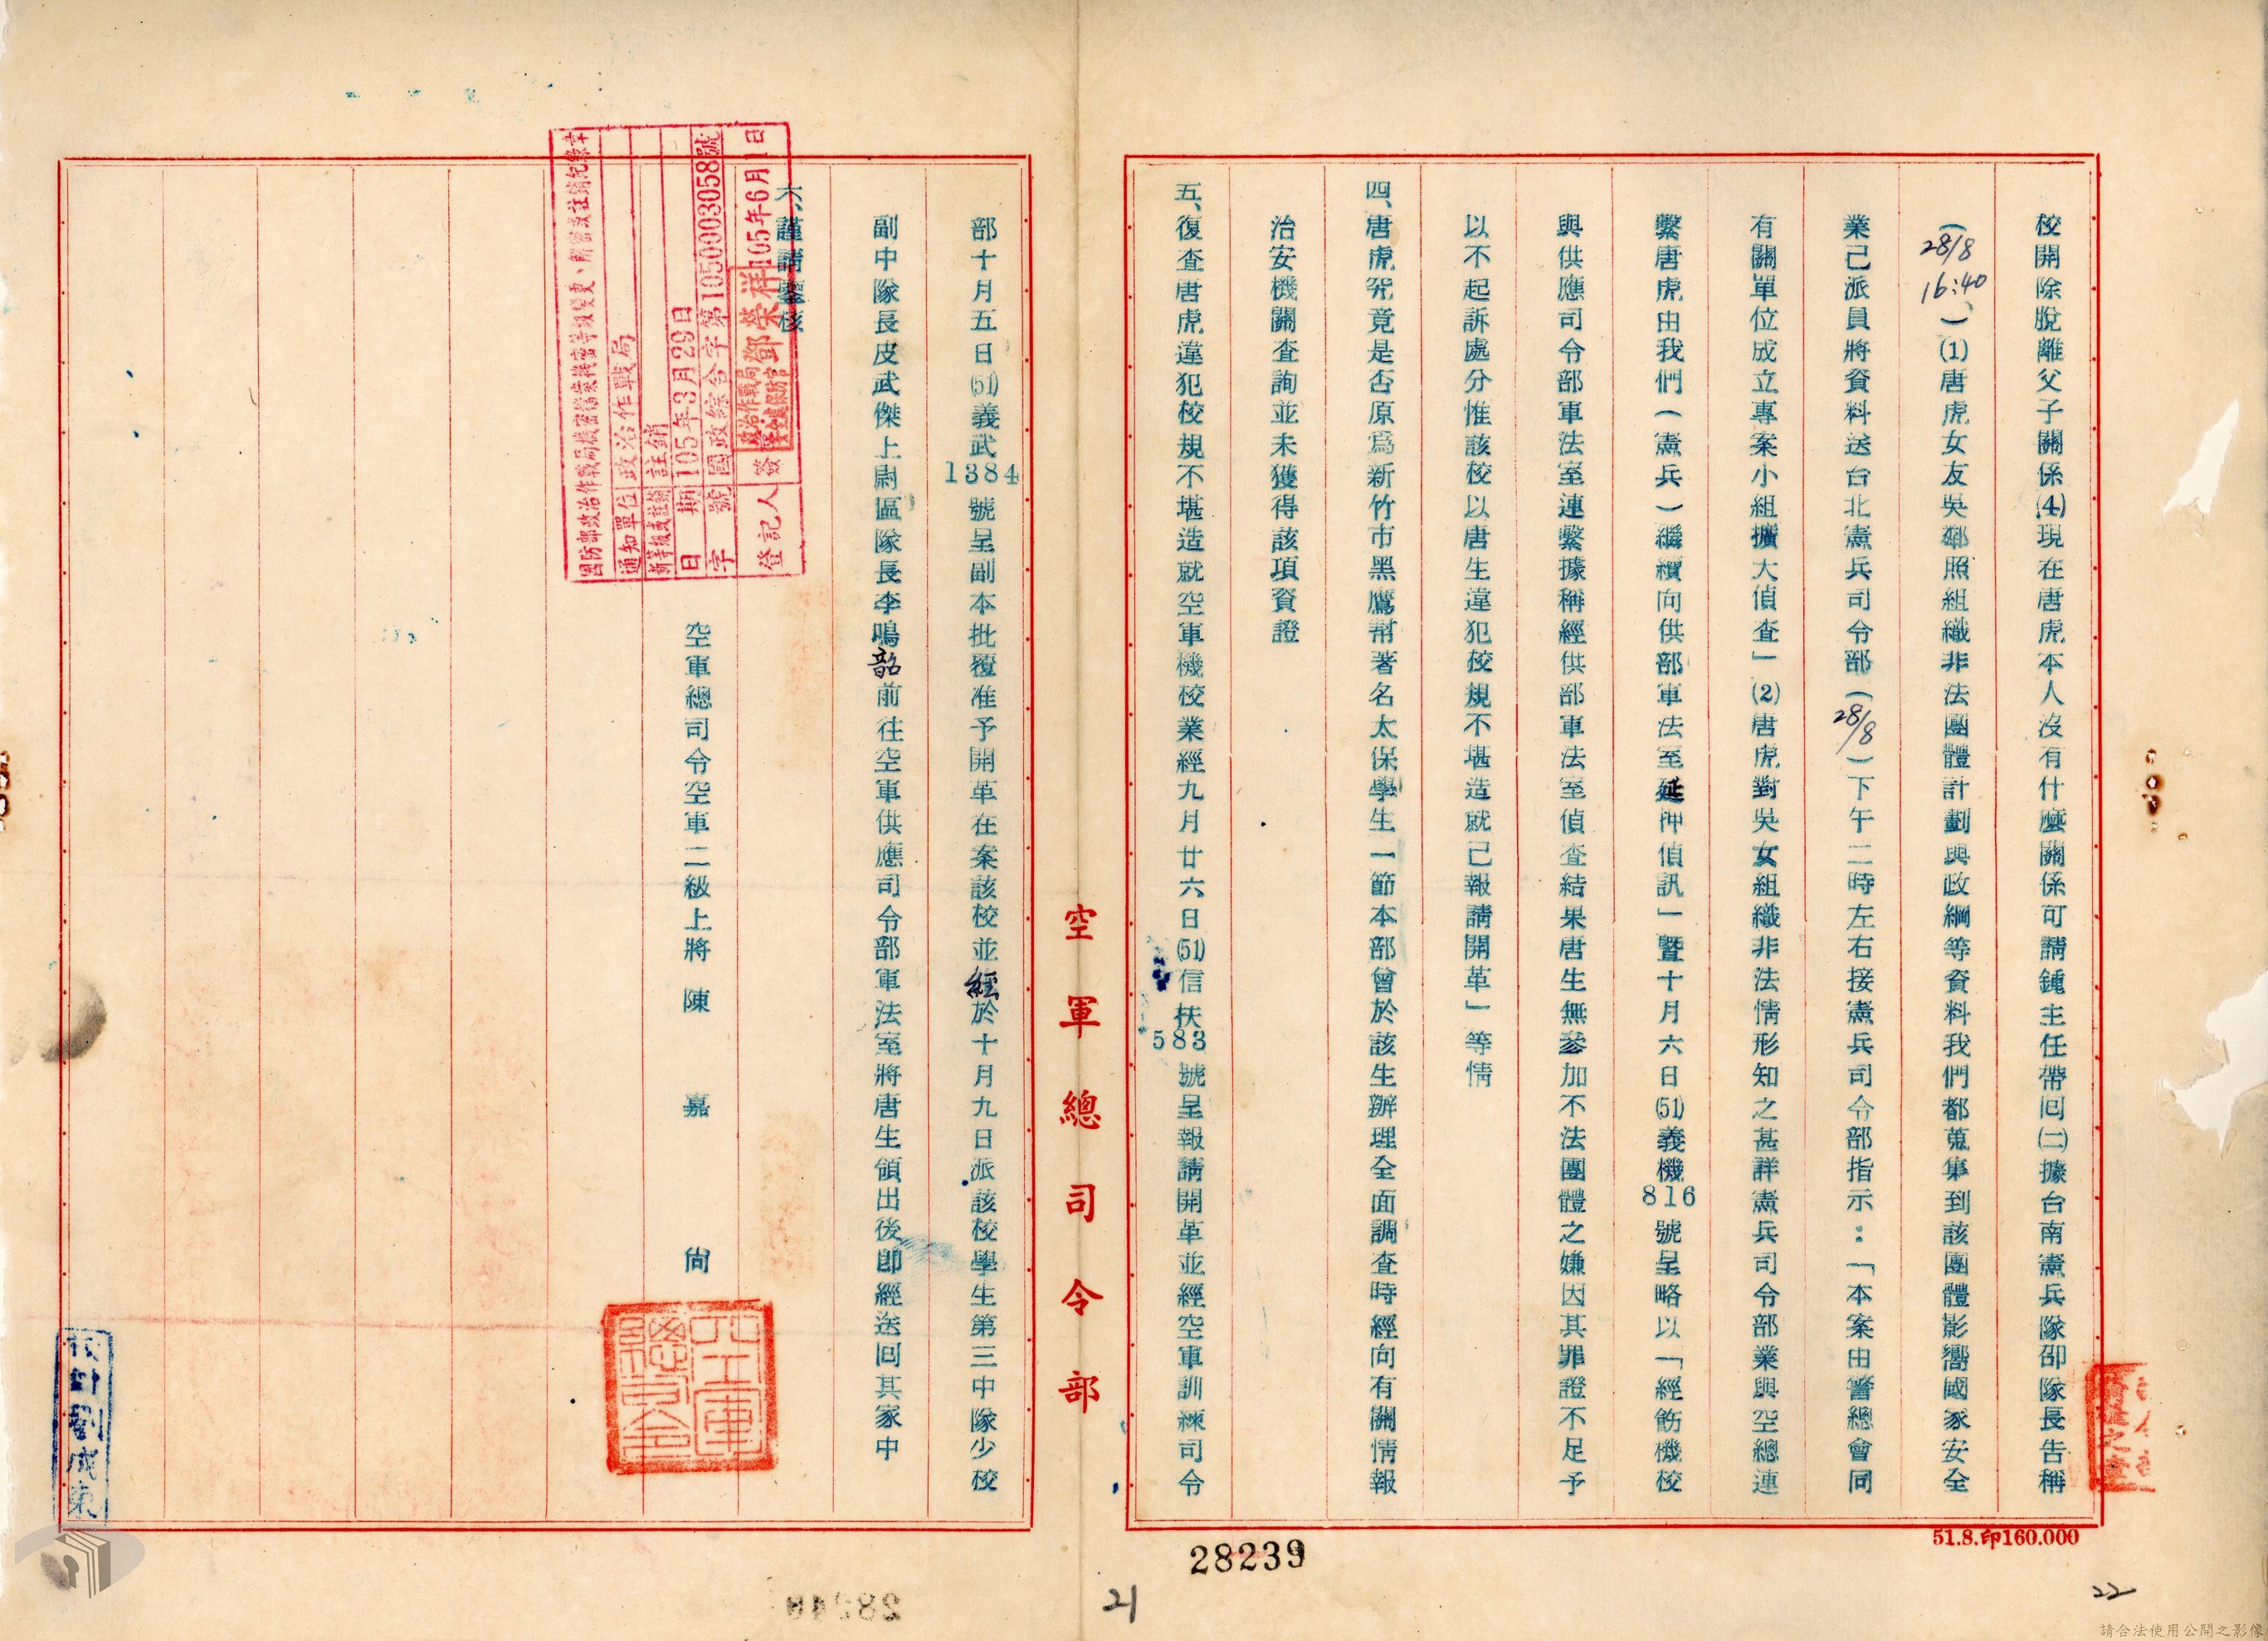 校開除脫離父子關係⑷現在唐虎本人沒有什麼關係可請鍾主任帶回㈡據台南憲兵隊邵隊長告稱
(28/8 16:40、)⑴唐虎女友吳鄰照組織非法團體計劃與政綱等資料我們都蒐集到該團體影嚮國家安全
業己派員將資料送台北憲兵司令部(28/8)下午二時左右接憲兵司令部指示:「本案由警總會同
有關單位成立專案小組擴大偵查」⑵唐虎對吳女組織非法情形知之甚詳憲兵司令部業與空總連
繫唐虎由我們(憲兵)繼續向供部軍法室延押偵訊」暨十月六日(51)義機816號呈略以「經飭機校
與供應司令部軍法室連繫據稱經供部軍法室偵查結果唐生無參加不法團體之嫌因其罪證不足予
以不起訴處分惟該校以唐生違犯校規不堪造就己報請開革」等情
四、唐虎究竟是否原為新竹市黑鷹幫著名太保學生一節本部曾於該生辦理全面調查時經向有關情報
治安機關查詢並未獲得該項資證
五、復查唐虎違犯校規不堪造就空軍機校業經九月廿六日(51)信扶583號呈報請開革並經空軍訓練司令
部十月五日(51)義武1384號呈副本批覆准予開革在案該校並經於十月九日派該校學生第三中隊少校
副中隊長皮武傑上尉區隊長李鳴韶前往空軍供應司令部軍法室將唐生領出後即經送回其家中
六、謹請鑒核
空軍總司令空軍二級上將陳嘉尚
空軍總司令
空軍總司令部
國防部政治作戰局機密檔案機密等級變更、解密或註銷紀錄章
通知單位 政治作戰局
新等級或註銷 註銷
日期 105年3月29日
字號 國政綜合字第1050003058號
登記人 簽 政治作戰局保防官 鄧榮祥 105年6月1日
校對劉成東
51.8.印160.000
28239
28240
21
22
請合法使用公開之影像